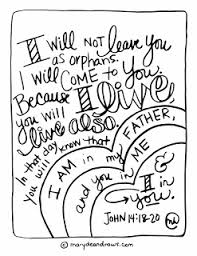 I will NOT leave you
as orphans.
I will COME to you.
Because I live,
you will
live also.
In that day
you will know that
I AM in my FATHER,
and you in ME
& I in
you.
JOHN 14:18-20
© marydeandraws.com